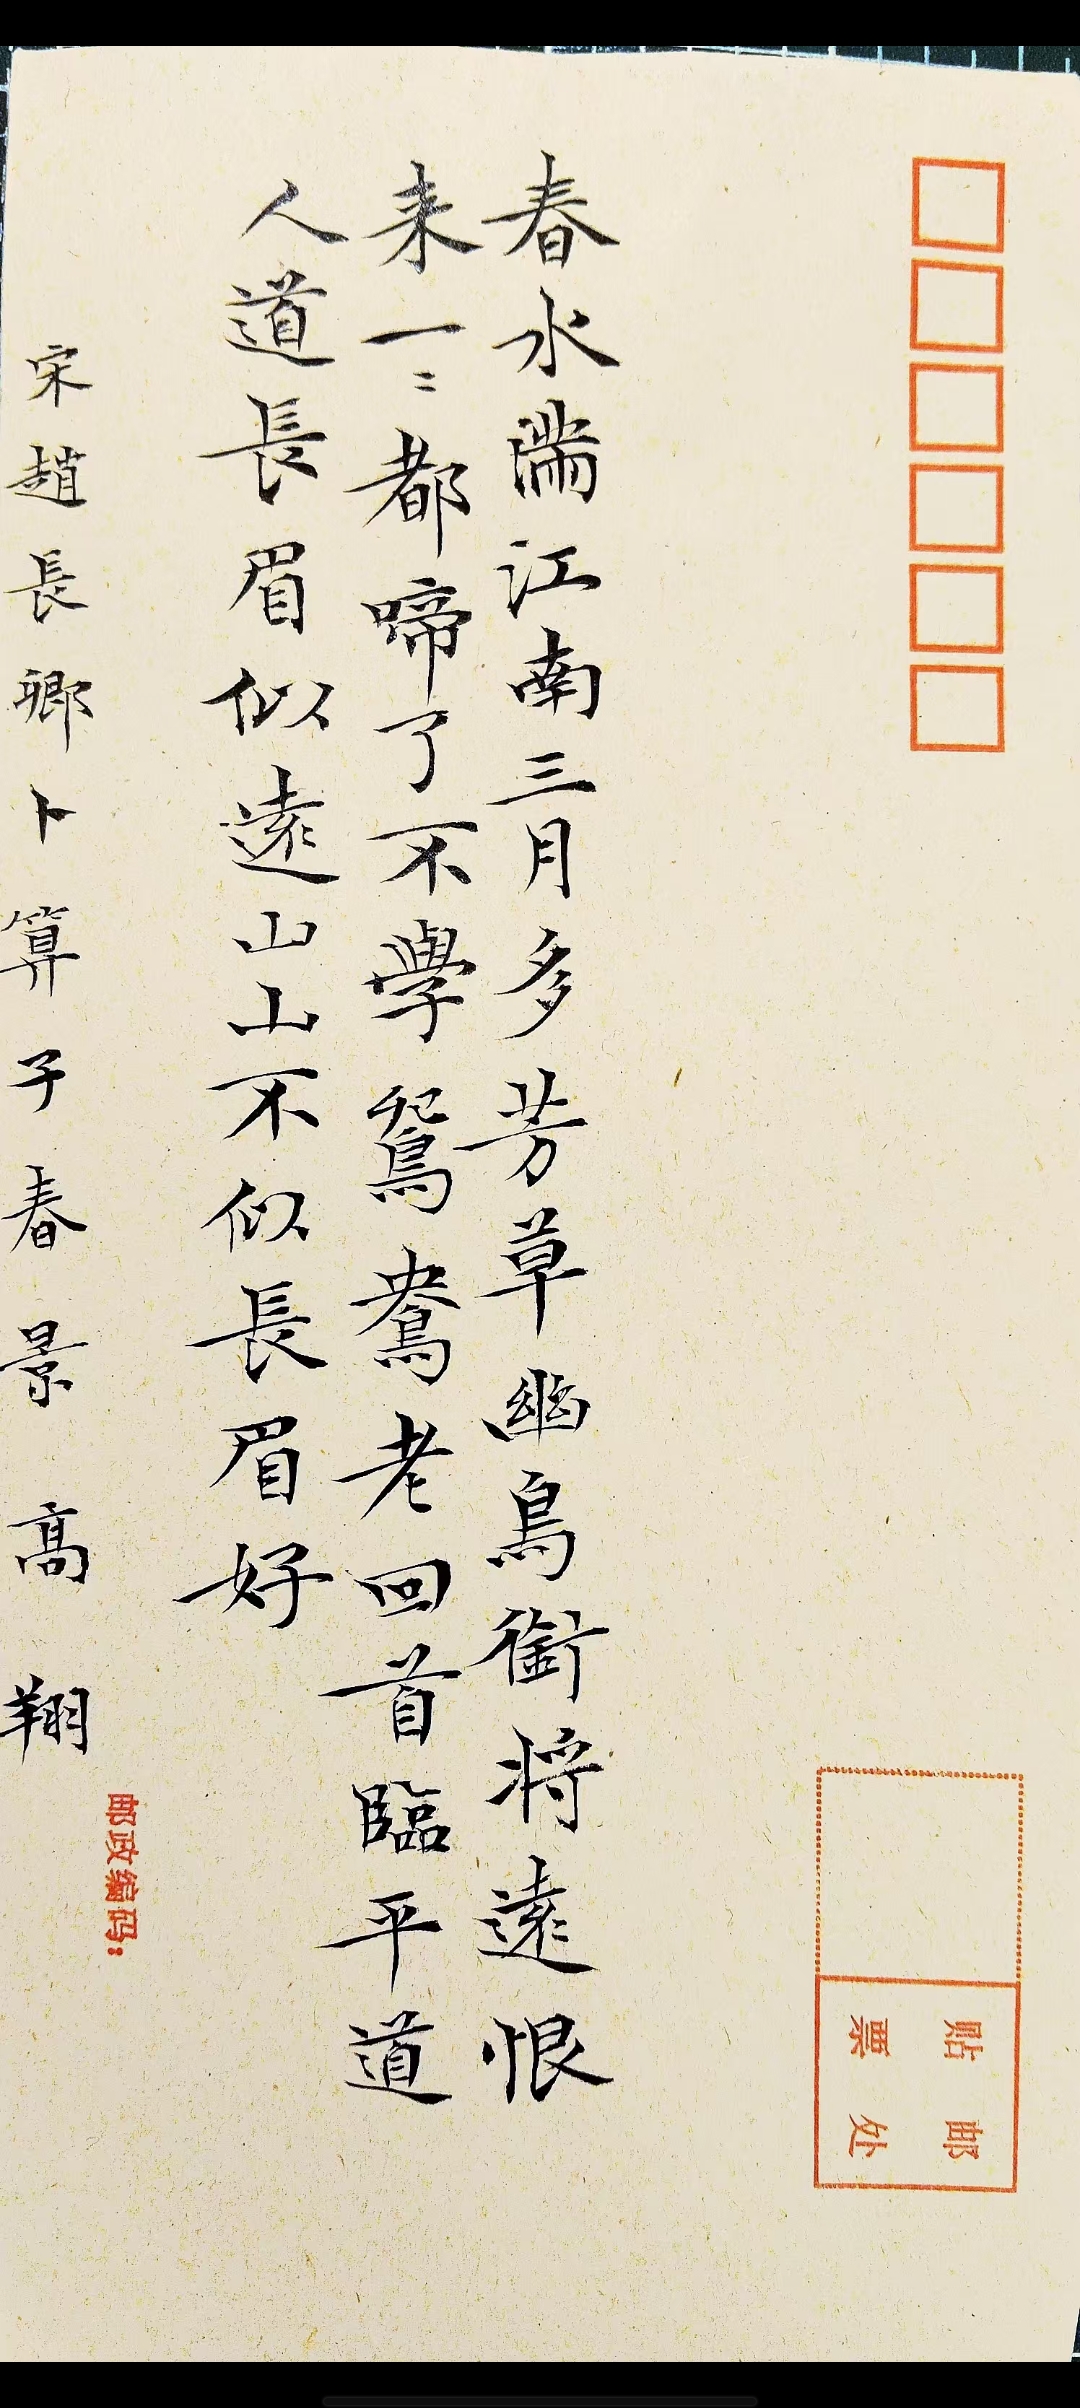 贴邮
票处
春水滿江南三月多芳草幽鳥銜将遠恨
来一〻都啼了不學鴛鴦老回首臨平道
人道長眉似遠山山不似長眉好
宋趙長卿卜算子春景高翔
邮政编码: